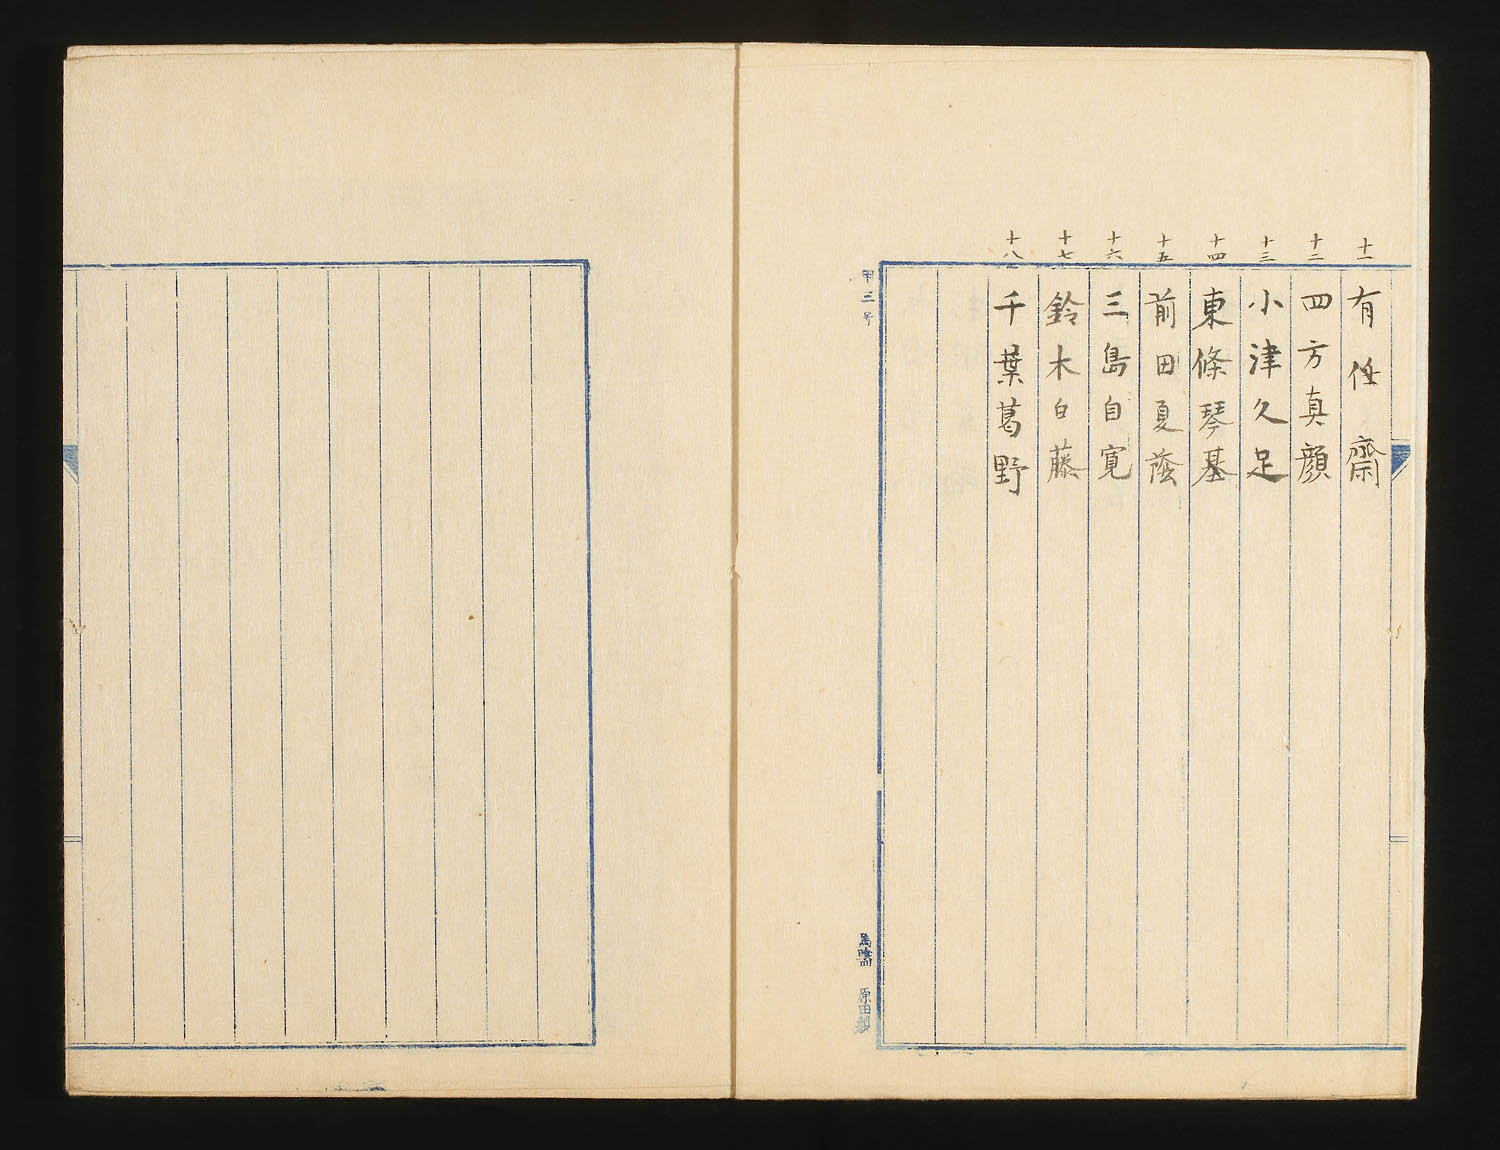 十一 有任齋
十二 四方真顔
十三 小津久足
十四 東條琴基
十五 前田夏蔭
十六 三島自寛
十七 鈴木白藤
十八 千葉葛野
甲三号
原田製